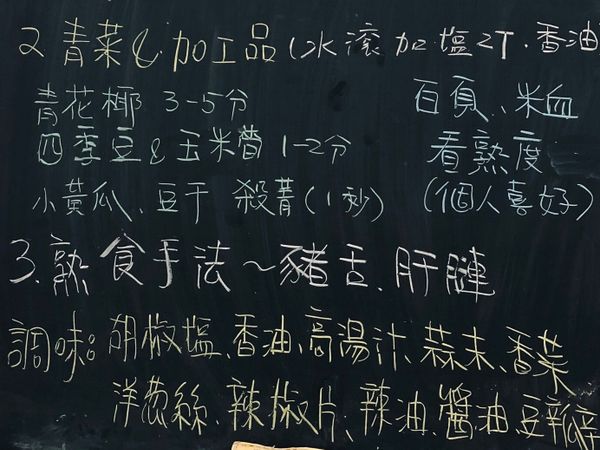 2.青菜&加工品(水滾加塩2T.香油
青花椰 3-5分 百頁、米血
四季豆&玉米筍 1-2分 看熟度
小黃瓜、豆干 殺菁(1秒) (個人喜好)
3.熟食手法~豬舌、肝
調味:胡椒塩、香油、高湯汁、蒜末、香菜
洋葱絲、辣椒片、辣油、醬油、豆瓣